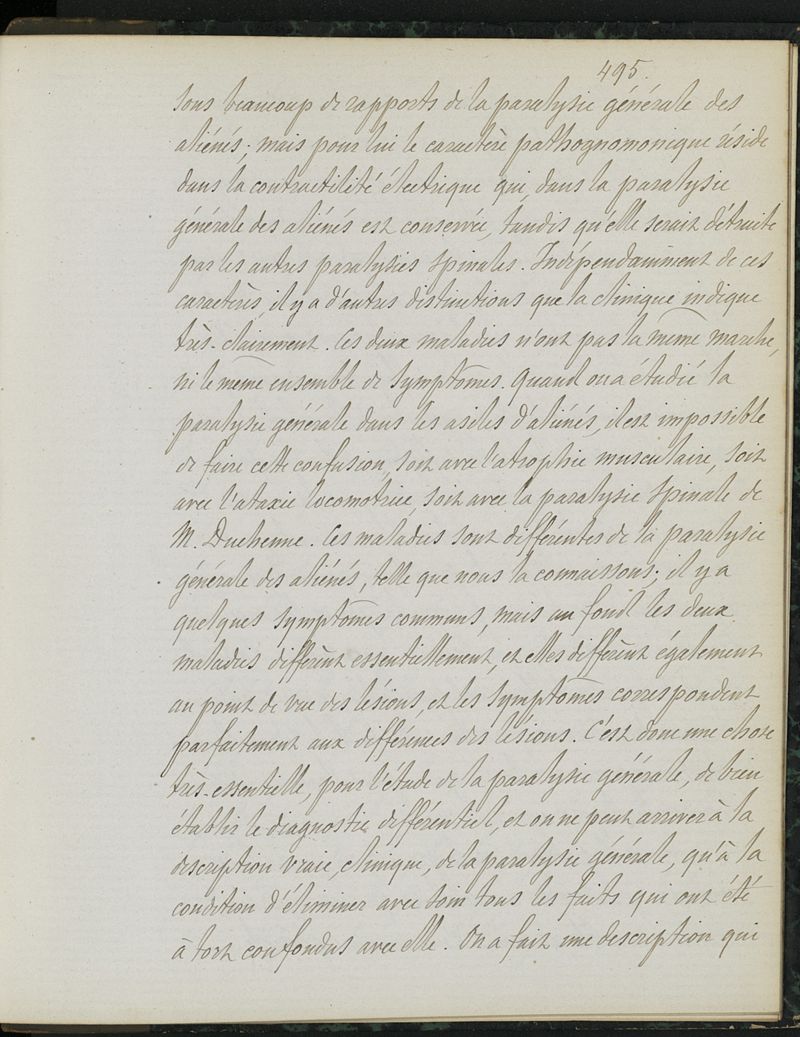 495.
sous beaucoup de rapports de la paralysie générale des
aliénés; mais pour lui le caractère pathognomonique réside
dans la contractilité électrique qui, dans la paralysie
générale des aliénés est conservée, tandis qu'elle serait détruite
par les autres paralysies spinales. Indépendamment de ces
caractères, il y a d'autres distinctions que la clinique indique
très-clairement. Ces deux maladies n'ont pas la même marche,
ni le même ensemble de symptômes. Quand on a étudié la
paralysie générale dans les asiles d'aliénés, il est impossible
de faire cette confusion, soit avec l'atrophie musculaire, soit
avec l'ataxie locomotrice, soit avec la paralysie spinale de
M. Duchenne. Ces maladies sont différentes de la paralysie
générale des aliénés, telle que nous la connaissons; il y a
quelques symptômes communs, mais au fond les deux
maladies diffèrent essentiellement, et elles diffèrent également
au point de vue des lésions, et les symptômes correspondent
parfaitement aux différences des lésions. C'est donc une chose
très-essentielle, pour l'étude de la paralysie générale, de bien
établir le diagnostic différentiel, et on ne peut arriver à la
description vraie, clinique, de la paralysie générale, qu'à la
condition d'éliminer avec soin tous les faits qui ont été
à tort confondus avec elle. On a fait une description qui